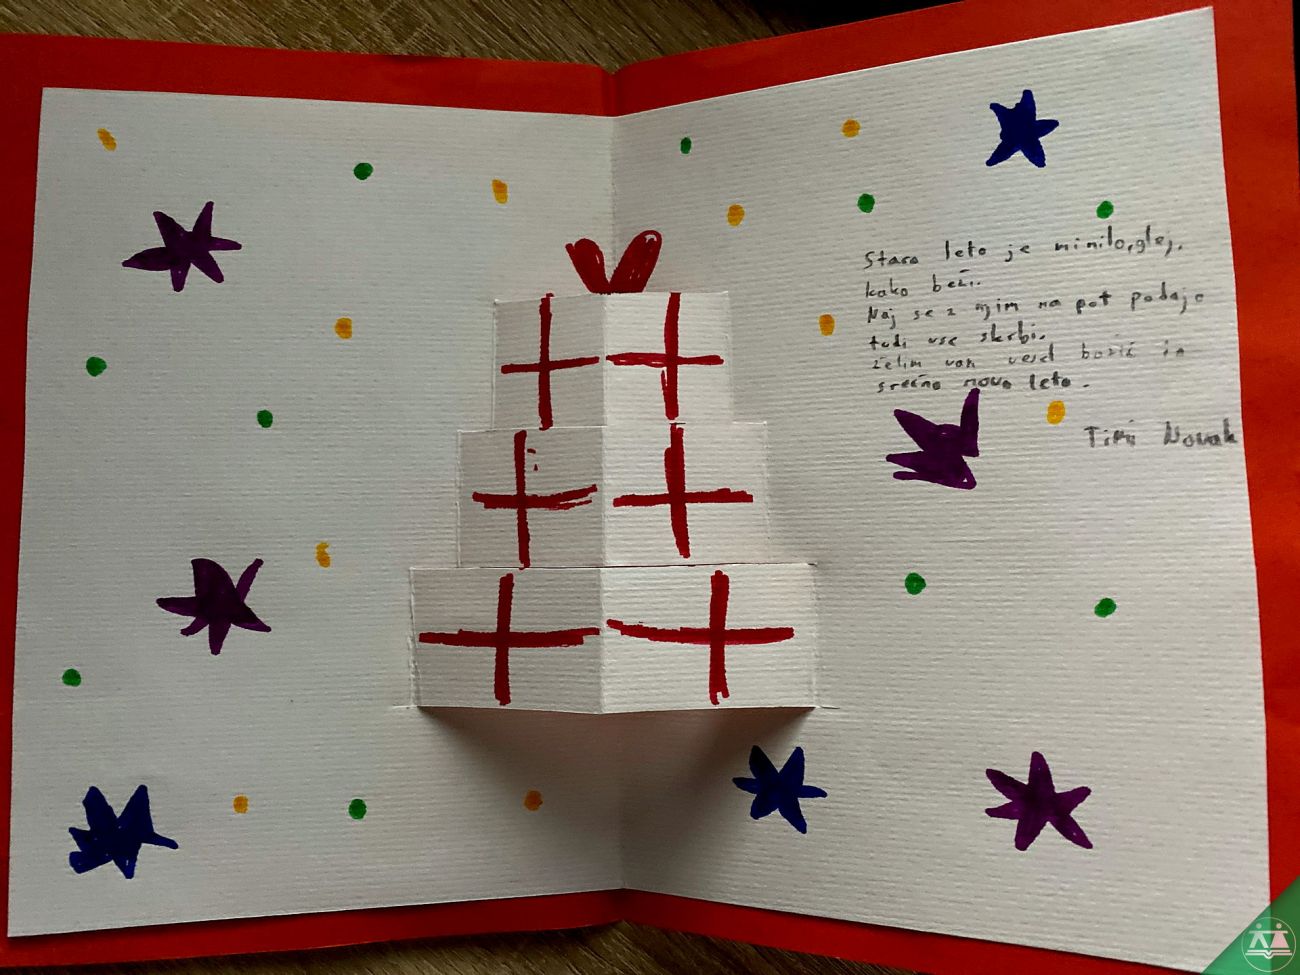 Staro leto je minilo, glej,
kako beži.
Naj se z njim na pot podajo
tudi vse skrbi.
želim vam vesel božič in
srečno novo leto.
Timi Novak